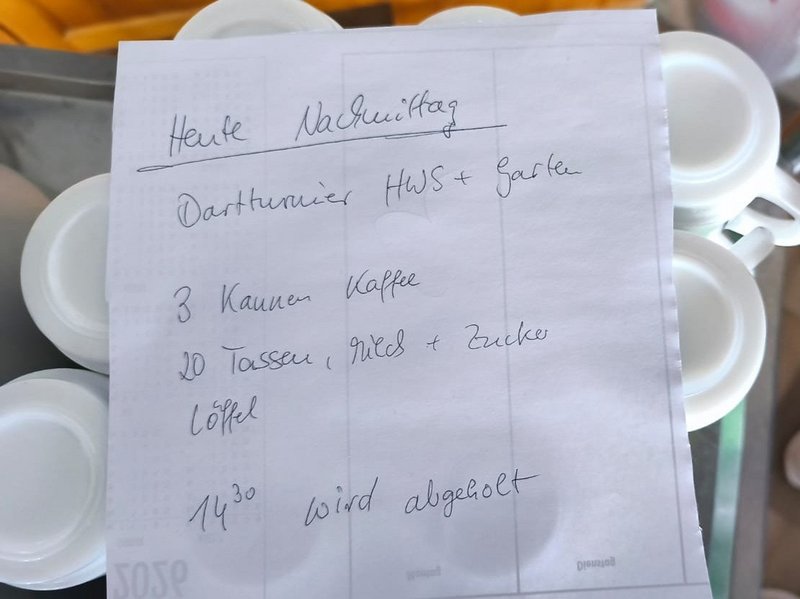 Heute Nachmittag
Dartturnier HWS + Garten
3 Kannen Kaffee
20 Tassen, Milch + Zucker
Löffel
14³⁰ wird abgeholt
2026
Montag
Dienstag